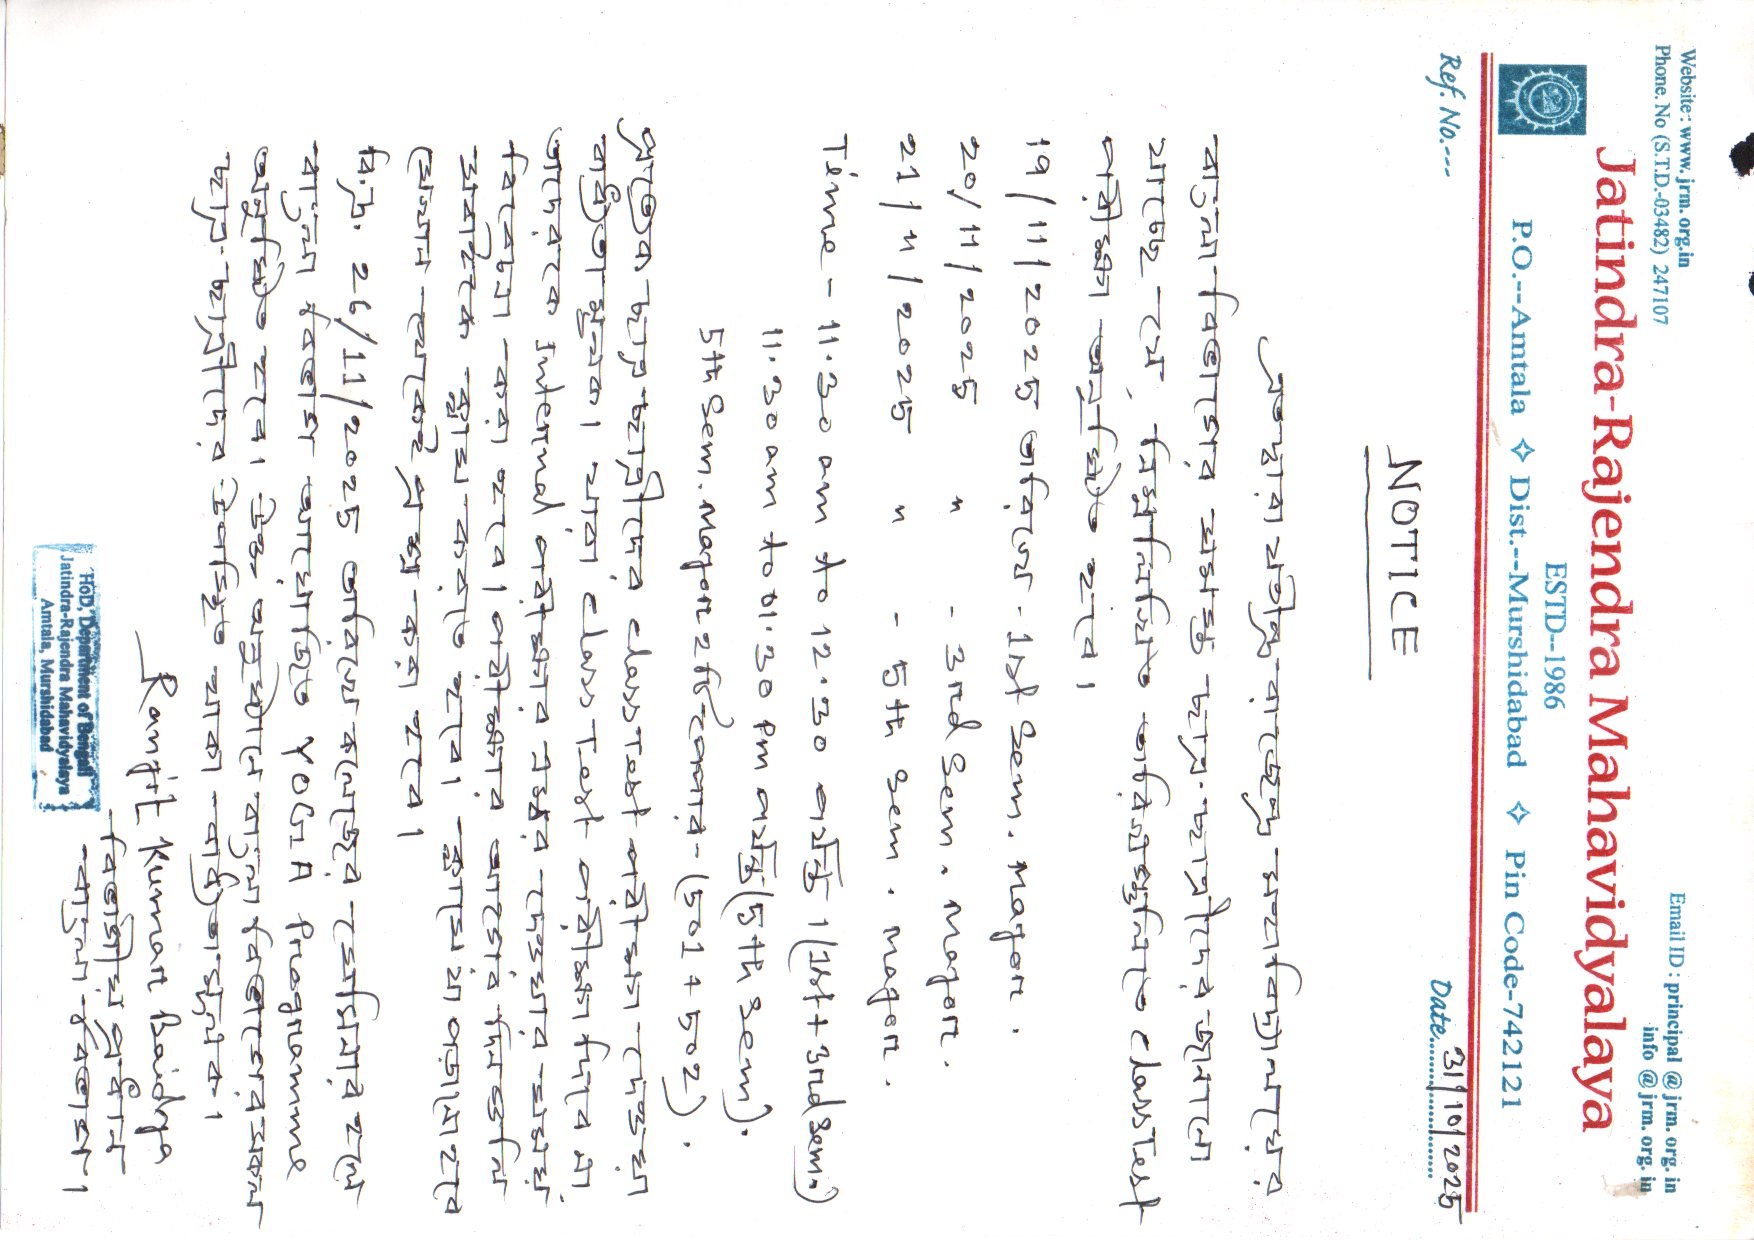 Website: www. jrm. org.in
Phone. No (S.T.D.-03482) 247107
Email ID : principal @ jrm. org. in
info @ jrm. org. in
Jatindra-Rajendra Mahavidyalaya
ESTD--1986
P.O.--Amtala ✧ Dist.--Murshidabad ✧ Pin Code-742121
Ref. No.---
Date..31/10/2025
NOTICE
এতদ্বারা যতীন্দ্র রাজেন্দ্র মহাবিদ্যালয়ের
বাংলা বিভাগের সমস্ত ছাত্র-ছাত্রীদের জানানো
যাচ্ছে যে, নিম্নলিখিত তারিখগুলিতে Class Test
পরীক্ষা অনুষ্ঠিত হবে।
19/11/2025 তারিখ - 1st Sem. Major.
20/11/2025 " - 3rd Sem. Major.
21/11/2025 " - 5th Sem. Major.
Time - 11.30 am to 12.30 পর্যন্ত। (1st + 3rd Sem.)
11.30 am to 01.30 pm পর্যন্ত (5th Sem).
5th Sem. Major 2টি পেপার - (501 + 502).
প্রত্যেক ছাত্রছাত্রীদের Class Test পরীক্ষা দেওয়া
বাধ্যতামূলক। যারা Class Test পরীক্ষা দিবে না
তাদেরকে Internal পরীক্ষার নম্বর দেওয়ার সময়
বিবেচনা করা হবে। পরীক্ষার আগের দিন গুলি
সবাইকে ক্লাস করতে হবে। ক্লাসে যা পড়ানো হবে
সেখান থেকেই প্রশ্ন করা হবে।
বি.দ্র. 26/11/2025 তারিখ কলেজের সেমিনার হলে
বাংলা বিভাগ আয়োজিত YOGA Programme
অনুষ্ঠিত হবে। উক্ত অনুষ্ঠানে বাংলা বিভাগের সকল
ছাত্র-ছাত্রীদের উপস্থিত থাকা বাধ্যতামূলক।
Ranjit Kumar Baidya
বিভাগীয় প্রধান
বাংলা বিভাগ।
HoD, Department of Bengali
Jatindra-Rajendra Mahavidyalaya
Amtala, Murshidabad